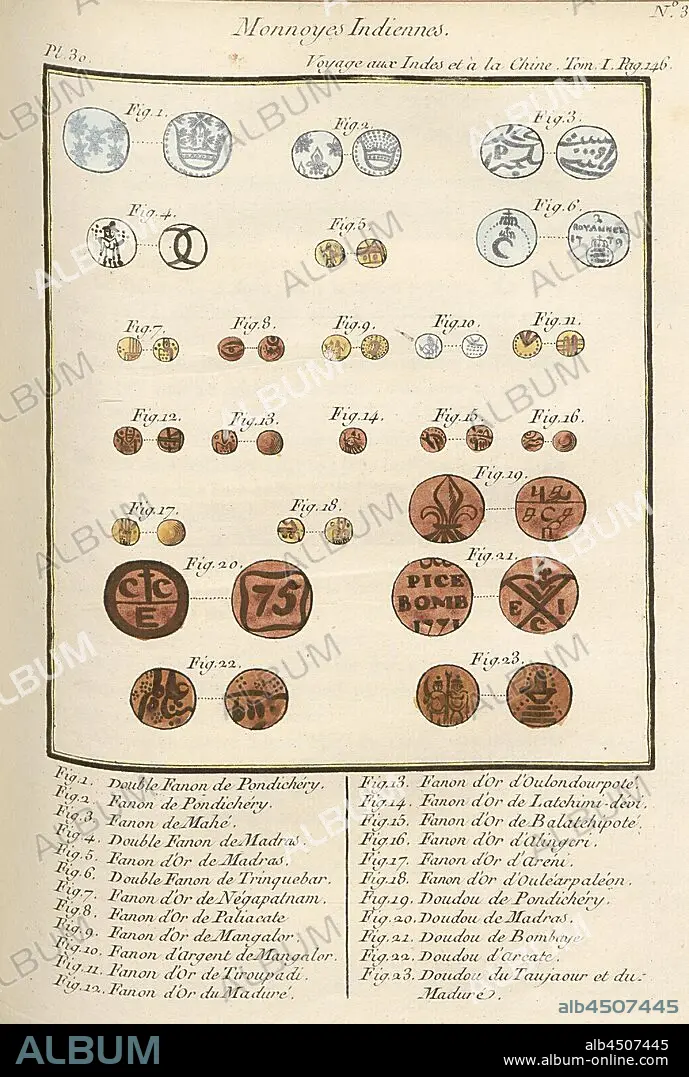 N.º 3
Monnoyes Indiennes.
Pl. 30.
Voyage aux Indes et à la Chine. Tom. I. Pag. 146.
Fig. 1.
Fig. 2.
Fig. 3.
Fig. 4.
Fig. 5.
Fig. 6.
2
ROYALINER
17 79
Fig. 7.
Fig. 8.
Fig. 9.
Fig. 10.
Fig. 11.
Fig. 12.
Fig. 13.
Fig. 14.
Fig. 15.
Fig. 16.
Fig. 17.
Fig. 18.
Fig. 19.
Fig. 20.
C C
E
75
Fig. 21.
PICE
BOMB
1771
E I
C
Fig. 22.
Fig. 23.
Fig. 1. Double Fanon de Pondichéry.
Fig. 2. Fanon de Pondichéry.
Fig. 3. Fanon de Mahé.
Fig. 4. Double Fanon de Madras.
Fig. 5. Fanon d'Or de Madras.
Fig. 6. Double Fanon de Trinquebar.
Fig. 7. Fanon d'Or de Négapatnam.
Fig. 8. Fanon d'Or de Paliacate
Fig. 9. Fanon d'Or de Mangalor.
Fig. 10. Fanon d'argent de Mangalor.
Fig. 11. Fanon d'Or de Tiroupadi.
Fig. 12. Fanon d'Or du Maduré.
Fig. 13. Fanon d'Or d'Oulondourpoté.
Fig. 14. Fanon d'Or de Latchimi-devi.
Fig. 15. Fanon d'Or de Balatchipoté.
Fig. 16. Fanon d'Or d'Alingeri.
Fig. 17. Fanon d'Or d'Areni.
Fig. 18. Fanon d'Or d'Ouléarpaléon.
Fig. 19. Doudou de Pondichéry.
Fig. 20. Doudou de Madras.
Fig. 21. Doudou de Bombaye
Fig. 22. Doudou d'Arcate.
Fig. 23. Doudou du Taujaour et du
Maduré.
alb4507445
ALBUM
alb4507445
www.album-online.com